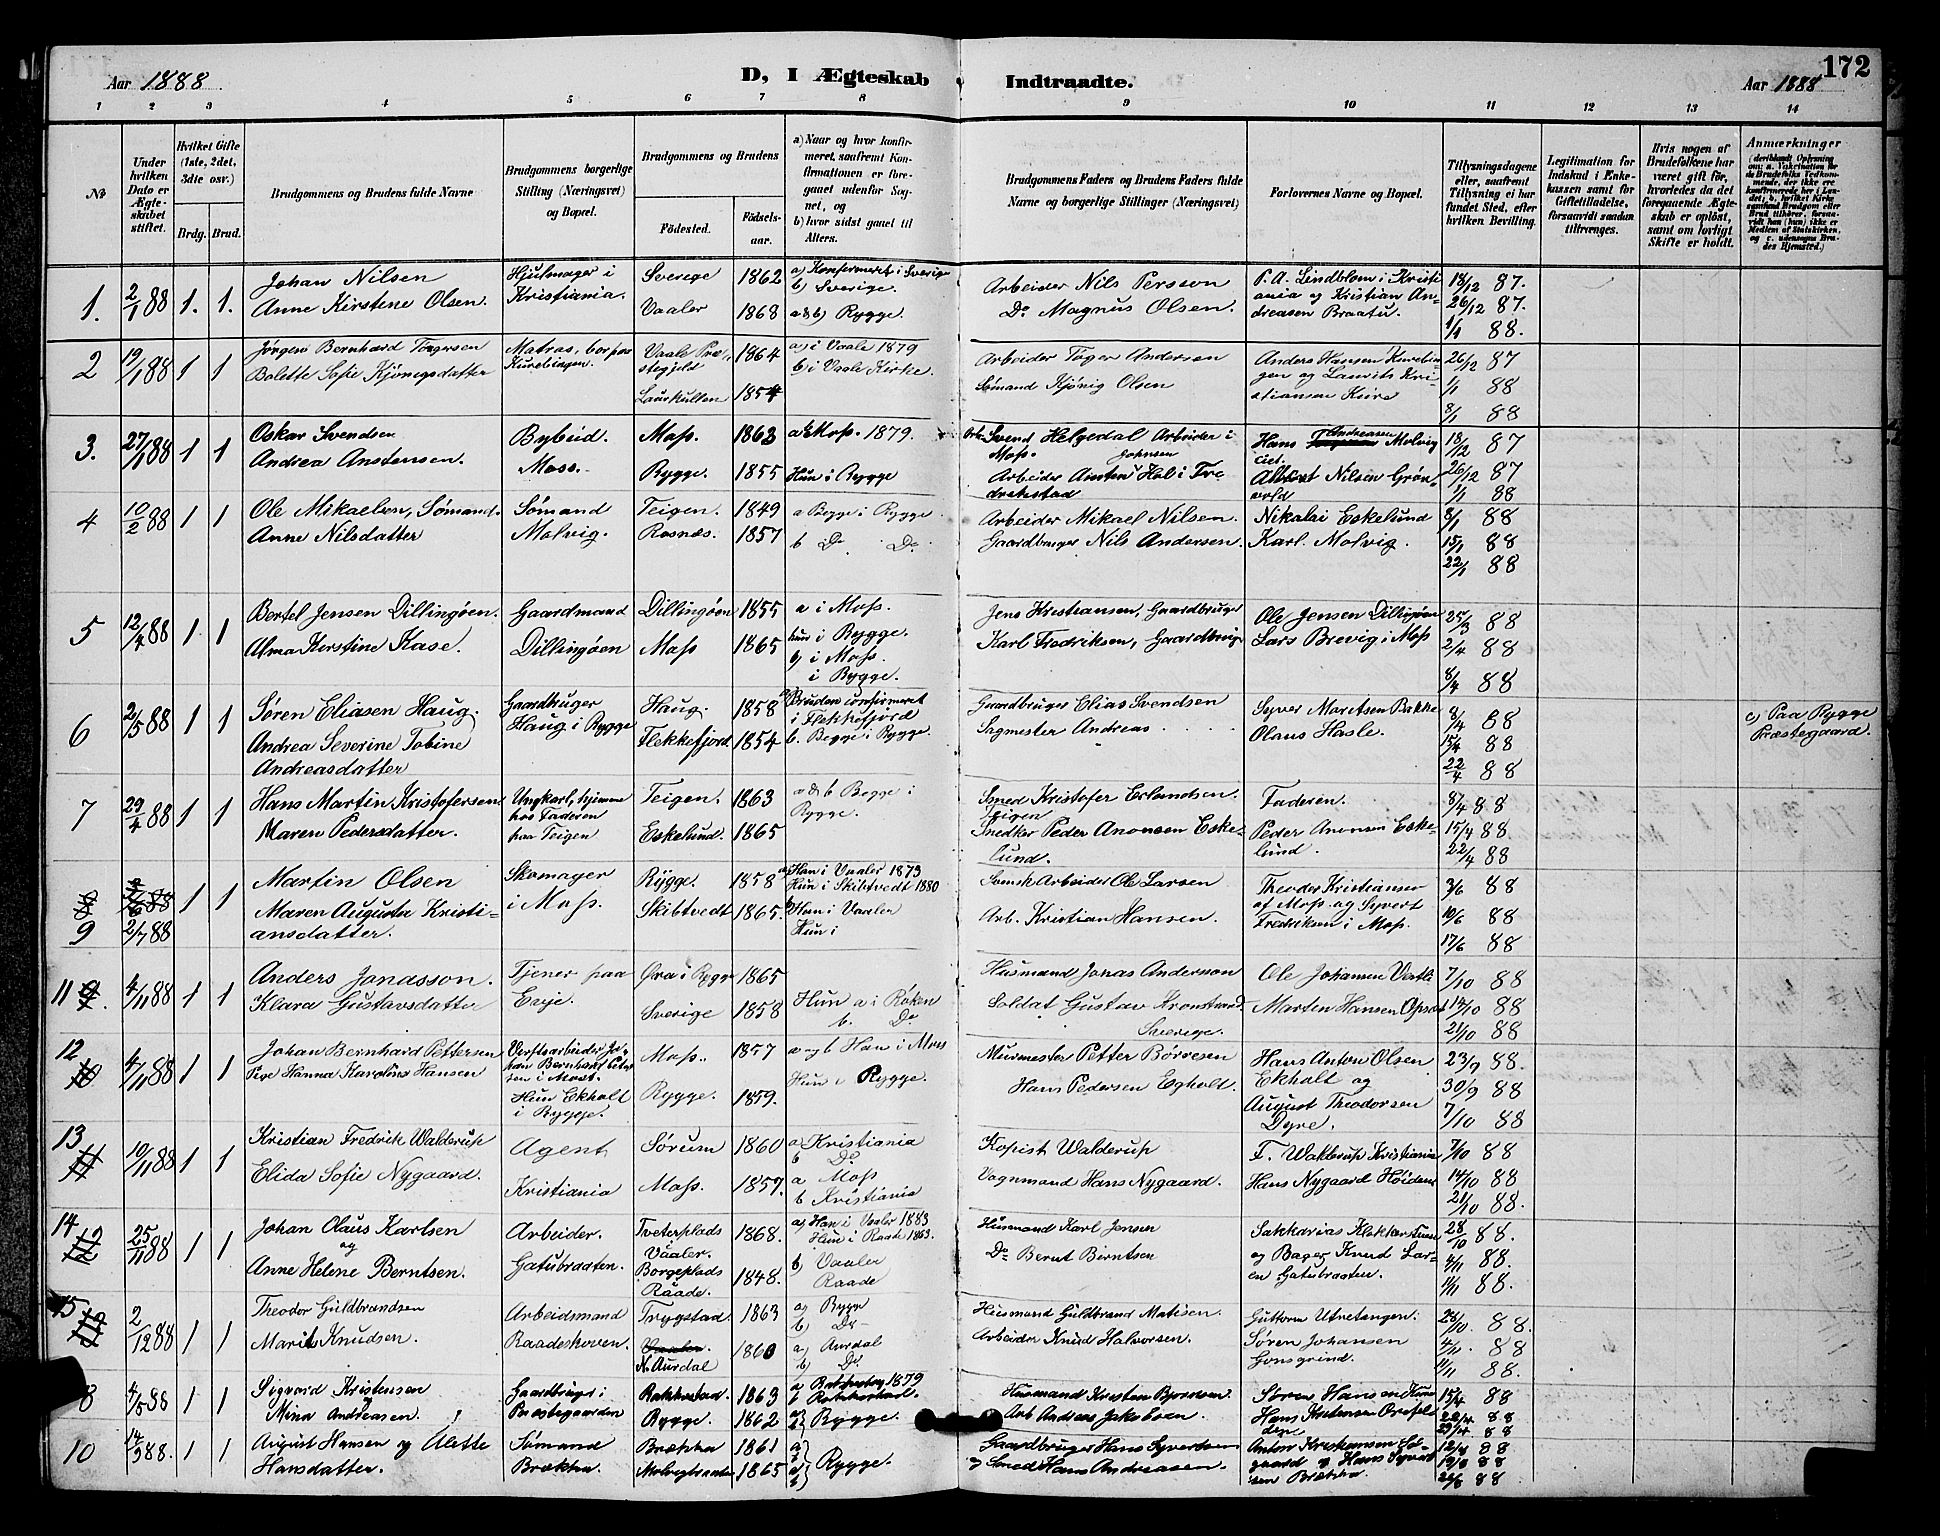 Aar 1888.
D, I Ægteskab Indtraadte.
Aar 1888
172
1 2 3 4 5 6 7 8 9 10 11 12 13 14
No
Under hvilken Dato er Ægteskabet stiftet.
Hvilket Gifte (1ste, 2det, 3dte osv.)
Brdg. Brud.
Brudgommens og Brudens fulde Navne
Brudgommens borgerlige Stilling (Næringsvei) og Bopæl.
Brudgommens og Brudens
Födested. Födselsaar.
a) Naar og hvor konfirmeret, saafremt Konfirmationen er foregaaet udenfor Sognet, og
b) hvor sidst gaaet til Alters.
Brudgommens Faders og Brudens Faders fulde Navne og borgerlige Stillinger (Næringsvei)
Forlovernes Navne og Bopæl.
Tillysningsdagene eller, saafremt Tillysning ei har fundet Sted, efter hvilken Bevilling.
Legitimation for Indskud i Enkekassen samt for Giftetilladelse, forsaavidt saadan tiltrænges.
Hvis nogen af Brudefolkene har været gift før, hvorledes da det foregaaende Ægteskab er oplöst, samt om lovligt Skifte er holdt.
Anmærkninger
1. 2/1 88 1. 1. Johan Nilsen Hjulmager i Sverige 1862 a) Konfirmeret i Sverige Arbeider Nils Persson P.A. Lindblom i Kristi 18/12 87.
Anne Kirstine Olsen. Kristiania. b) Sverige. ania og Kristian An- 26/12 87.
Vaaler 1868 a & b) Rygge. Do Magnus Olsen. dreasen Braatu. 1/1 88.
2 19/1 88 1 1 Jørgen Bernhard Togersen Matros, bor paa Vaale Præ- 1864 a) i Vaale 1879 Arbeider Toger Andersen Anders Hansen 26/12 87
Bolette Sofie Kjönigsdatter stegjeld b) i Vaale Kirke. Sømand Kjönig Olsen gen og Laurits Kri- 1/1 88
Laurkullen 1854 stiansen Kure 8/1 88
3. 27/1 88 1 1 Oskar Svendsen Bybud. Moss. 1863 a & b Moss. 1879. Svend Helgedal Arbeider i Hans Andreasen Molvig 18/12 87
Andrea Anstensen. Moss. Rygge. 1855 Hun i Rygge Moss. Johnsen
Arbeider Ansten Hol i Fre- Albert Nilsen Grøn- 26/12 87
drikstad vold 1/1 88
4 10/2 88 1 1 Ole Mikaelsen, Sømand. Sømand Teigen. 1849 a Begge i Rygge Arbeider Mikael Nilsen. Nikolai Eskelund 8/1 88
Anne Nilsdatter Molvig. Rosnæs. 1857 b Do Do Gaardbruger Nils Andersen. Karl. Molvig. 15/1 88
22/1 88
5 12/4 88 1. 1 Bertel Jensen Dillingøen. Gaardmand Dillingøen 1855 a i Moss. Jens Kristiansen, Gaardbruger Ole Jensen Dillingøen 25/3 88
Alma Kirstine Kase. Dillingøen Moss 1865 hun i Rygge. Karl Fredriksen, Gaardbruger Lars Brevig i Moss 2/4 88
b) i Moss.
i Rygge. 8/4 88
6 2/5 88 1 1 Søren Eliasen Haug. Gaardbruger Haug. 1858 a) Bruden confirmeret Gaardbruger Elias Svendsen Syver Moritsen Bakke 8/4 88
Andrea Severine Tobine Haug i Rygge Flekkefjord 1854 i Flekkefjord Sagmester Andreas Olaus Hasle. 15/4 88
Andreasdatter b. Begge i Rygge. 22/4 88
c) Paa Rygge Præstegaard.
7 29/4 88 1 1 Hans Martin Kristofersen Ungkarl, hjemme Teigen. 1863 a & b Begge i Smed Kristofer Erlandsen. Faderen. 8/4 88
Maren Pedersdatter. hos Faderen Eskelund. 1865 Rygge. Teigen
paa Teigen Snedker Peder Anonsen Eske- Peder Anonsen Eske- 15/4 88
lund. lund. 22/4 88
9 2/7 88 1 1 Martin Olsen Skomager Rygge. 1858 a) Han i Vaaler 1873 Svensk Arbeider Ole Larsen Theodor Kristiansen 3/6 88
Maren Augusta Kristi- i Moss. Skibtvedt 1865. Hun i Skibtvedt 1880 af Moss og Syvert 10/6 88
ansdatter. b) Han i Vaaler Arb. Kristian Hansen. Fredriksen i Moss. 17/6 88
Hun i
11 4/11 88 1 1 Anders Jonasson. Tjener paa Øra i Rygge 1865 Husmand Jonas Anderson Ole Johansen Vertli 7/10 88
Klara Gustavsdatter Evje. Sverige 1858 Hun a i Røken Soldat Gustav Kronstrand. Martin Hansen Opsal 14/10 88
b. Do Sverige. 21/10 88
12 4/11 88 1 1 Johan Bernhard Pettersen Verftsarbeider Jo- Moss. 1857 a og b Han i Moss Murmester Petter Börresen Hans Anton Olsen 23/9 88.
Pige Hanna Karoline Hansen han Bernhard Petter- Rygge. 1859. Hun i Rygge. Hans Pedersen Egholt. Ekholt og 30/9 88
sen i Moss. August Theodorsen
Hun Ekholt i Rygge. Dyre. 7/10 88
13 10/11 88 1 1 Kristian Fredrik Walderup Agent Sørum 1860 a Kristiania Kopist Walderup F. Walderup Kristiania 7/10 88
b Do
Elida Sofie Nygaard. Kristiania Moss. 1857. a Moss Vognmand Hans Nygaard. Hans Nygaard Höiden 14/10 88
b Kristiania 21/10 88.
14 25/11 88 1 1 Johan Olaus Karlsen Arbeider. Tveterplads 1868. a) Han i Vaaler 1883 Husmand Karl Jensen Sakkarias 28/10 88.
og Vaaler. Hun i Raade 1863.
Anne Helene Berntsen. Gatubraaten. Borgeplads 1848. b) Vaaler Do Bernt Berntsen og Bager Knud Lar- 4/11 88.
Raade. Raade sen Gatubraaten. 11/11 88.
15 2/12 88 1 1 Theodor Guldbrandsen Arbeidsmand Trygstad. 1863 a) Rygge Husmand Guldbrand Matisen. Guttorm Utnetangen. 28/10. 88.
b) Do
Marit Knudsen. Raadeshoven. N. Aurdal 1860 a) Aurdal Arbeider Knud Halvorsen. Søren Johansen 4/11. 88
b) Do Gonsgrind. 11/11 88.
8 4/5 88 1 1 Sigvard Kristensen Gaardbruger i Rakkestad. 1863 a Rakkestad 1879 Husmand Kristen Søren Hansen 15/4 88
b Rakkestad.
Mina Andreasen. Præstegaarden Rygge. 1862 Rygge. Arb Andreas Jakobsen. Hans Kristensen 22/4 88
29/4. 88
10 14/9 88. 1 1 August Hansen og Alette Sømand Brækka 1861 Rygge. Gaardbruger Hans Syvertsen Anton Kristiansen 12/8 88
Hansdatter. Brækka. 1865 og Smed Hans Andreasen. gaard og Hans Syvert 19/8 88
sen Brækka. 26/8 88